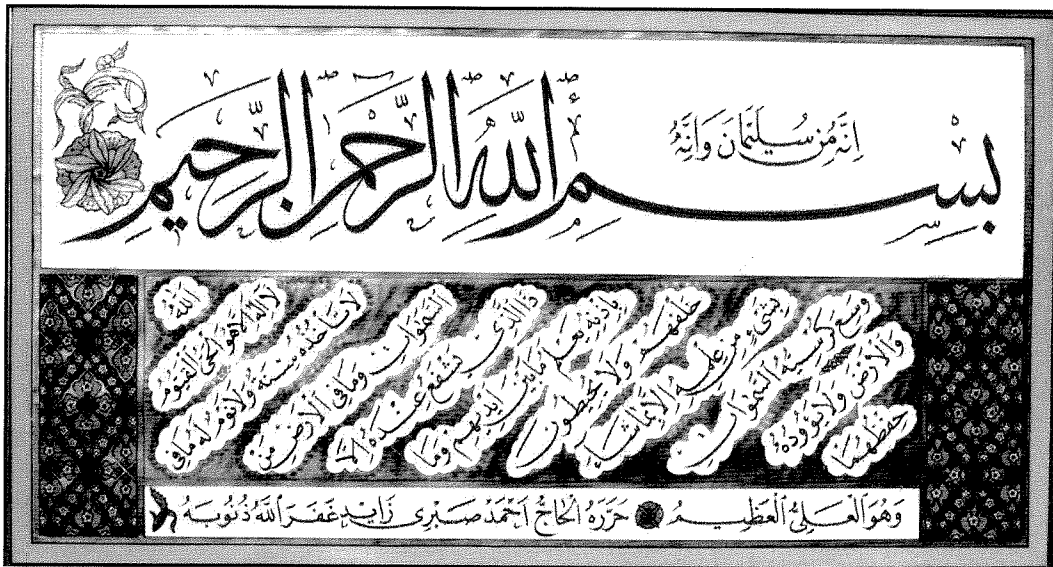 اِنَّهُ مِن سُلَيْمَانَ وَاِنَّهُ
بِسْمِ اللهِ الرَّحْمٰنِ الرَّحِيمِ
اَللّٰهُ
لَا اِلٰهَ اِلَّا هُوَ الْحَىُّ الْقَيُّومُ
لَا تَاْخُذُهُ سِنَةٌ وَلَا نَوْمٌ لَهُ مَا فِى
السَّمٰوَاتِ وَمَا فِى الْاَرْضِ مَنْ
ذَا الَّذِى يَشْفَعُ عِنْدَهُ اِلَّا
بِاِذْنِهِ يَعْلَمُ مَا بَيْنَ اَيْدِيهِمْ وَمَا
خَلْفَهُمْ وَلَا يُحِيطُونَ
بِشَىْءٍ مِنْ عِلْمِهِ اِلَّا بِمَا شَاءَ
وَسِعَ كُرْسِيُّهُ السَّمٰوَاتِ
وَالْاَرْضَ وَلَا يَؤُودُهُ
حِفْظُهُمَا
وَهُوَ الْعَلِىُّ الْعَظِيمُ حَرَّرَهُ الْحَاجّ اَحْمَدْ صَبْرِى زَايِد غَفَرَ اللهُ ذُنُوبَهُ